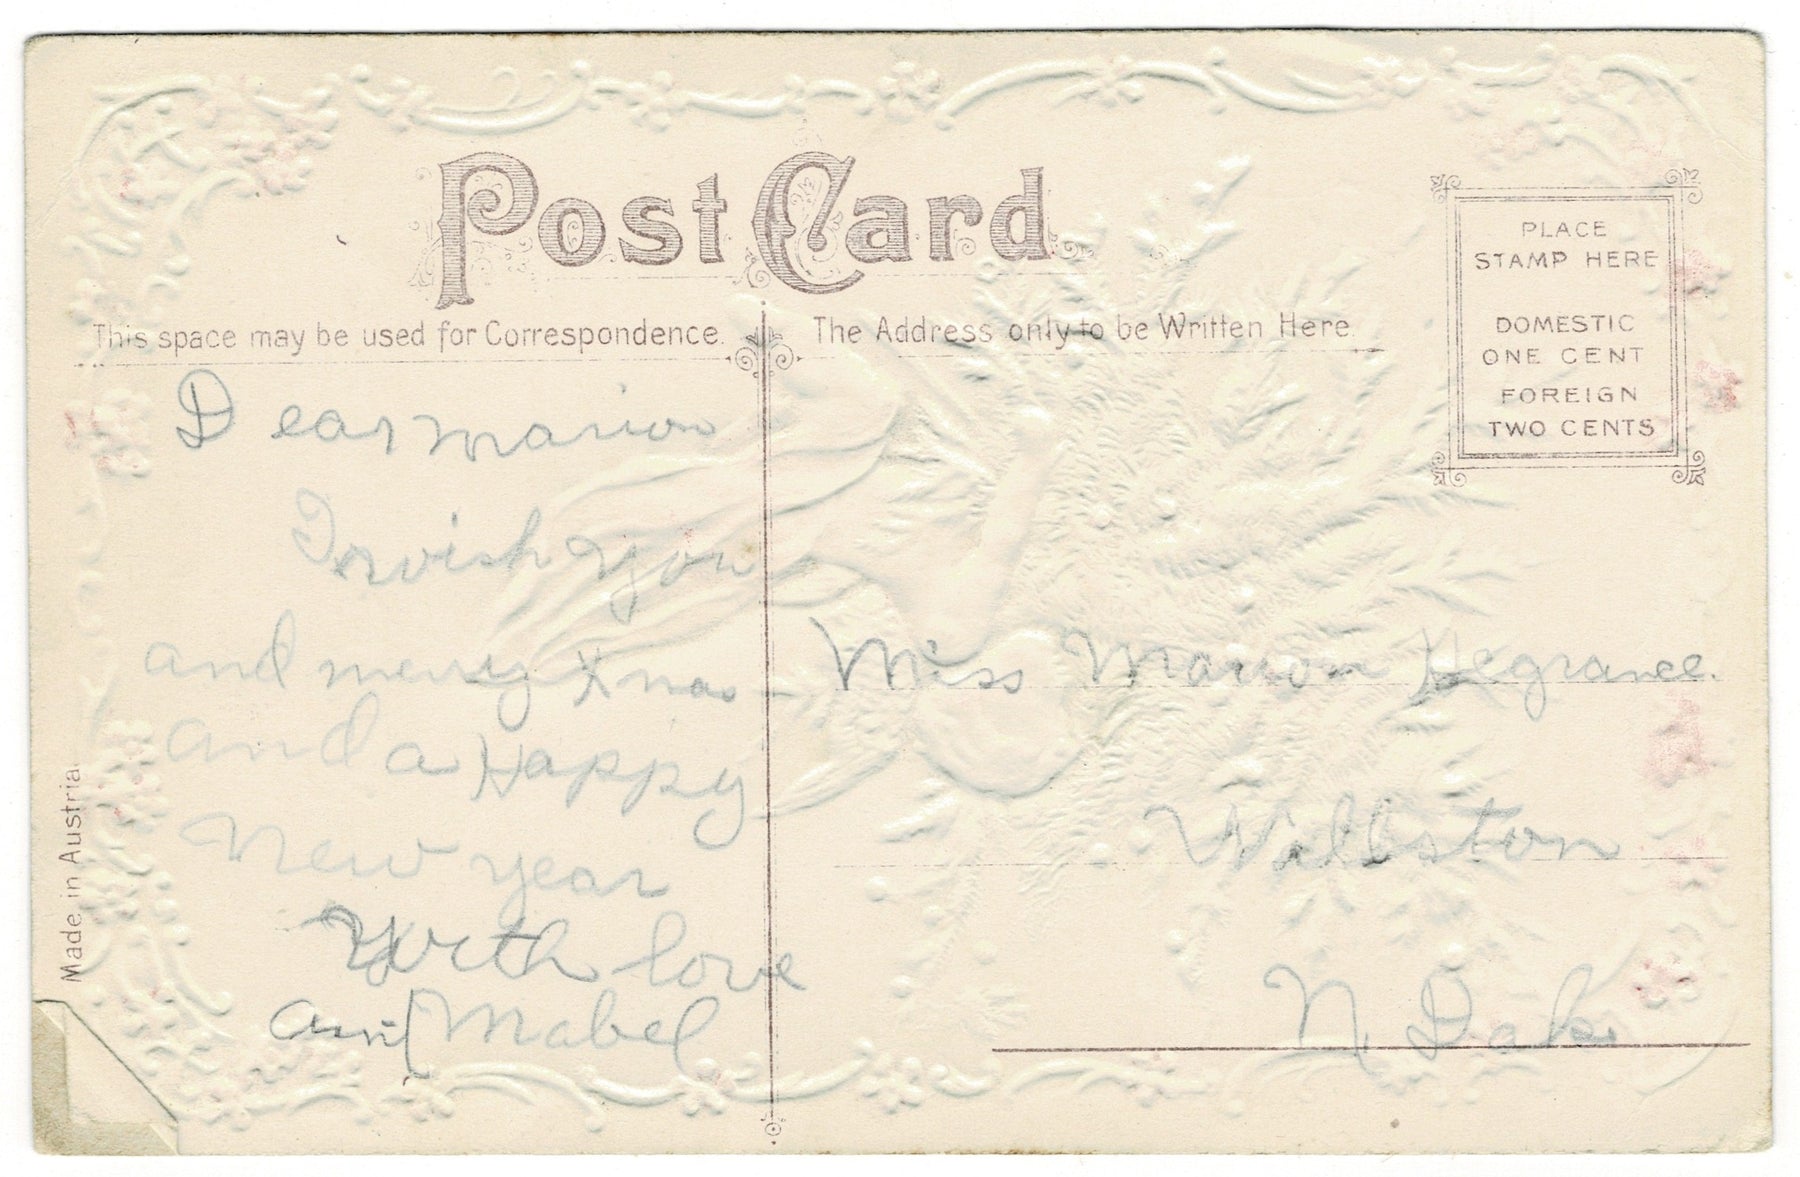 Post Card
This space may be used for Correspondence.
The Address only to be Written Here.
PLACE
STAMP HERE
DOMESTIC
ONE CENT
FOREIGN
TWO CENTS
Dear Marion
I wish you
and merry Xmas
and a Happy
New year
With love
Mabel
Miss Marion
Williston
N. Dak.
Made in Austria.